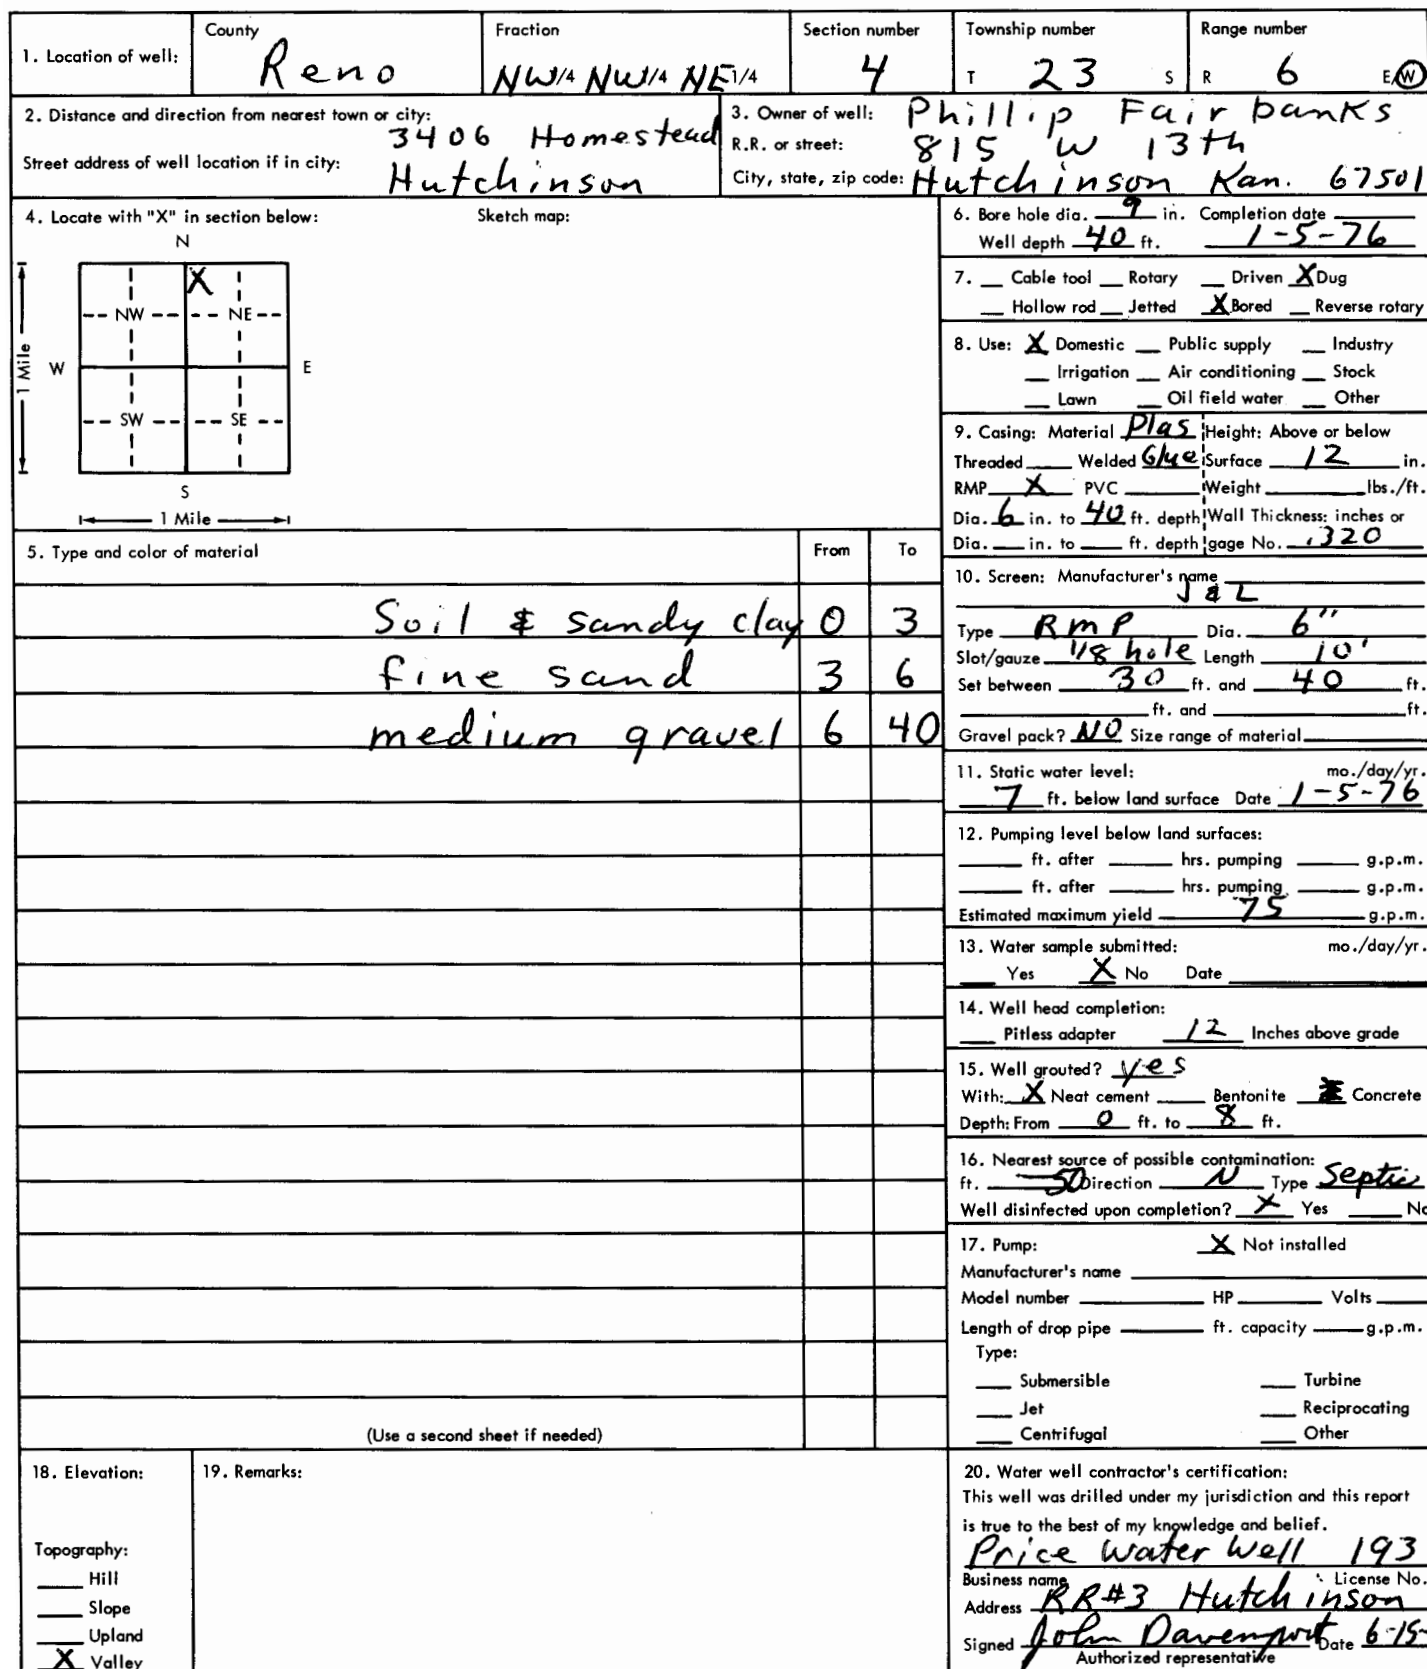 1. Location of well: County Reno Fraction NW1/4 NW1/4 NE1/4 Section number 4 Township number T 23 S Range number R 6 E/W
2. Distance and direction from nearest town or city: 3406 Homestead
Street address of well location if in city: Hutchinson
3. Owner of well: Phillip Fairbanks
R.R. or street: 815 W 13th
City, state, zip code: Hutchinson Kan. 67501
4. Locate with "X" in section below: Sketch map:
N
X
NW NE
1 Mile W E
SW SE
S
1 Mile
5. Type and color of material From To
Soil & sandy clay 0 3
fine sand 3 6
medium gravel 6 40
(Use a second sheet if needed)
6. Bore hole dia. 9 in. Completion date
Well depth 40 ft. 1-5-76
7. __ Cable tool __ Rotary __ Driven X Dug
__ Hollow rod __ Jetted X Bored __ Reverse rotary
8. Use: X Domestic __ Public supply __ Industry
__ Irrigation __ Air conditioning __ Stock
__ Lawn __ Oil field water __ Other
9. Casing: Material Plas Height: Above or below
Threaded __ Welded Glue Surface 12 in.
RMP X PVC __ Weight __ lbs./ft.
Dia. 6 in. to 40 ft. depth Wall Thickness: inches or
Dia. __ in. to __ ft. depth gage No. .320
10. Screen: Manufacturer's name
J & L
Type RMP Dia. 6"
Slot/gauze 1/8 hole Length 10'
Set between 30 ft. and 40 ft.
__ ft. and __ ft.
Gravel pack? NO Size range of material
11. Static water level: mo./day/yr.
7 ft. below land surface Date 1-5-76
12. Pumping level below land surfaces:
__ ft. after __ hrs. pumping __ g.p.m.
__ ft. after __ hrs. pumping __ g.p.m.
Estimated maximum yield 75 g.p.m.
13. Water sample submitted: mo./day/yr.
__ Yes X No Date
14. Well head completion:
__ Pitless adapter 12 Inches above grade
15. Well grouted? yes
With: X Neat cement __ Bentonite __ Concrete
Depth: From 0 ft. to 8 ft.
16. Nearest source of possible contamination:
ft. 50 Direction N Type Septic
Well disinfected upon completion? X Yes __ No
17. Pump: X Not installed
Manufacturer's name
Model number __ HP __ Volts
Length of drop pipe __ ft. capacity __ g.p.m.
Type:
__ Submersible __ Turbine
__ Jet __ Reciprocating
__ Centrifugal __ Other
18. Elevation:
Topography:
__ Hill
__ Slope
__ Upland
X Valley
19. Remarks:
20. Water well contractor's certification:
This well was drilled under my jurisdiction and this report
is true to the best of my knowledge and belief.
Price Water Well 193
Business name License No.
Address RR#3 Hutchinson
Signed John Davenport Date 6-15-
Authorized representative